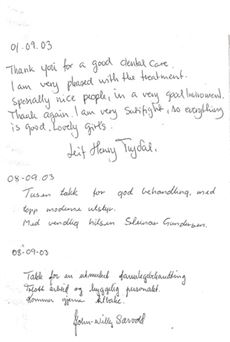 01.09.03
Thank you for a good dental care.
I am very pleased with the treatment.
Specially nice people, in a very good
Thank again. I am very, so everything
is good. Lovely girls.
Leif Henry
08-09.03
Tusen takk for god behandling, med
topp moderne utstyr.
Med vennlig hilsen Steinar Gundersen.
08-09-03
Takk for en utmerket
Flott arbeid og hyggelig personale.
Kommer gjerne tilbake.
John-Willy